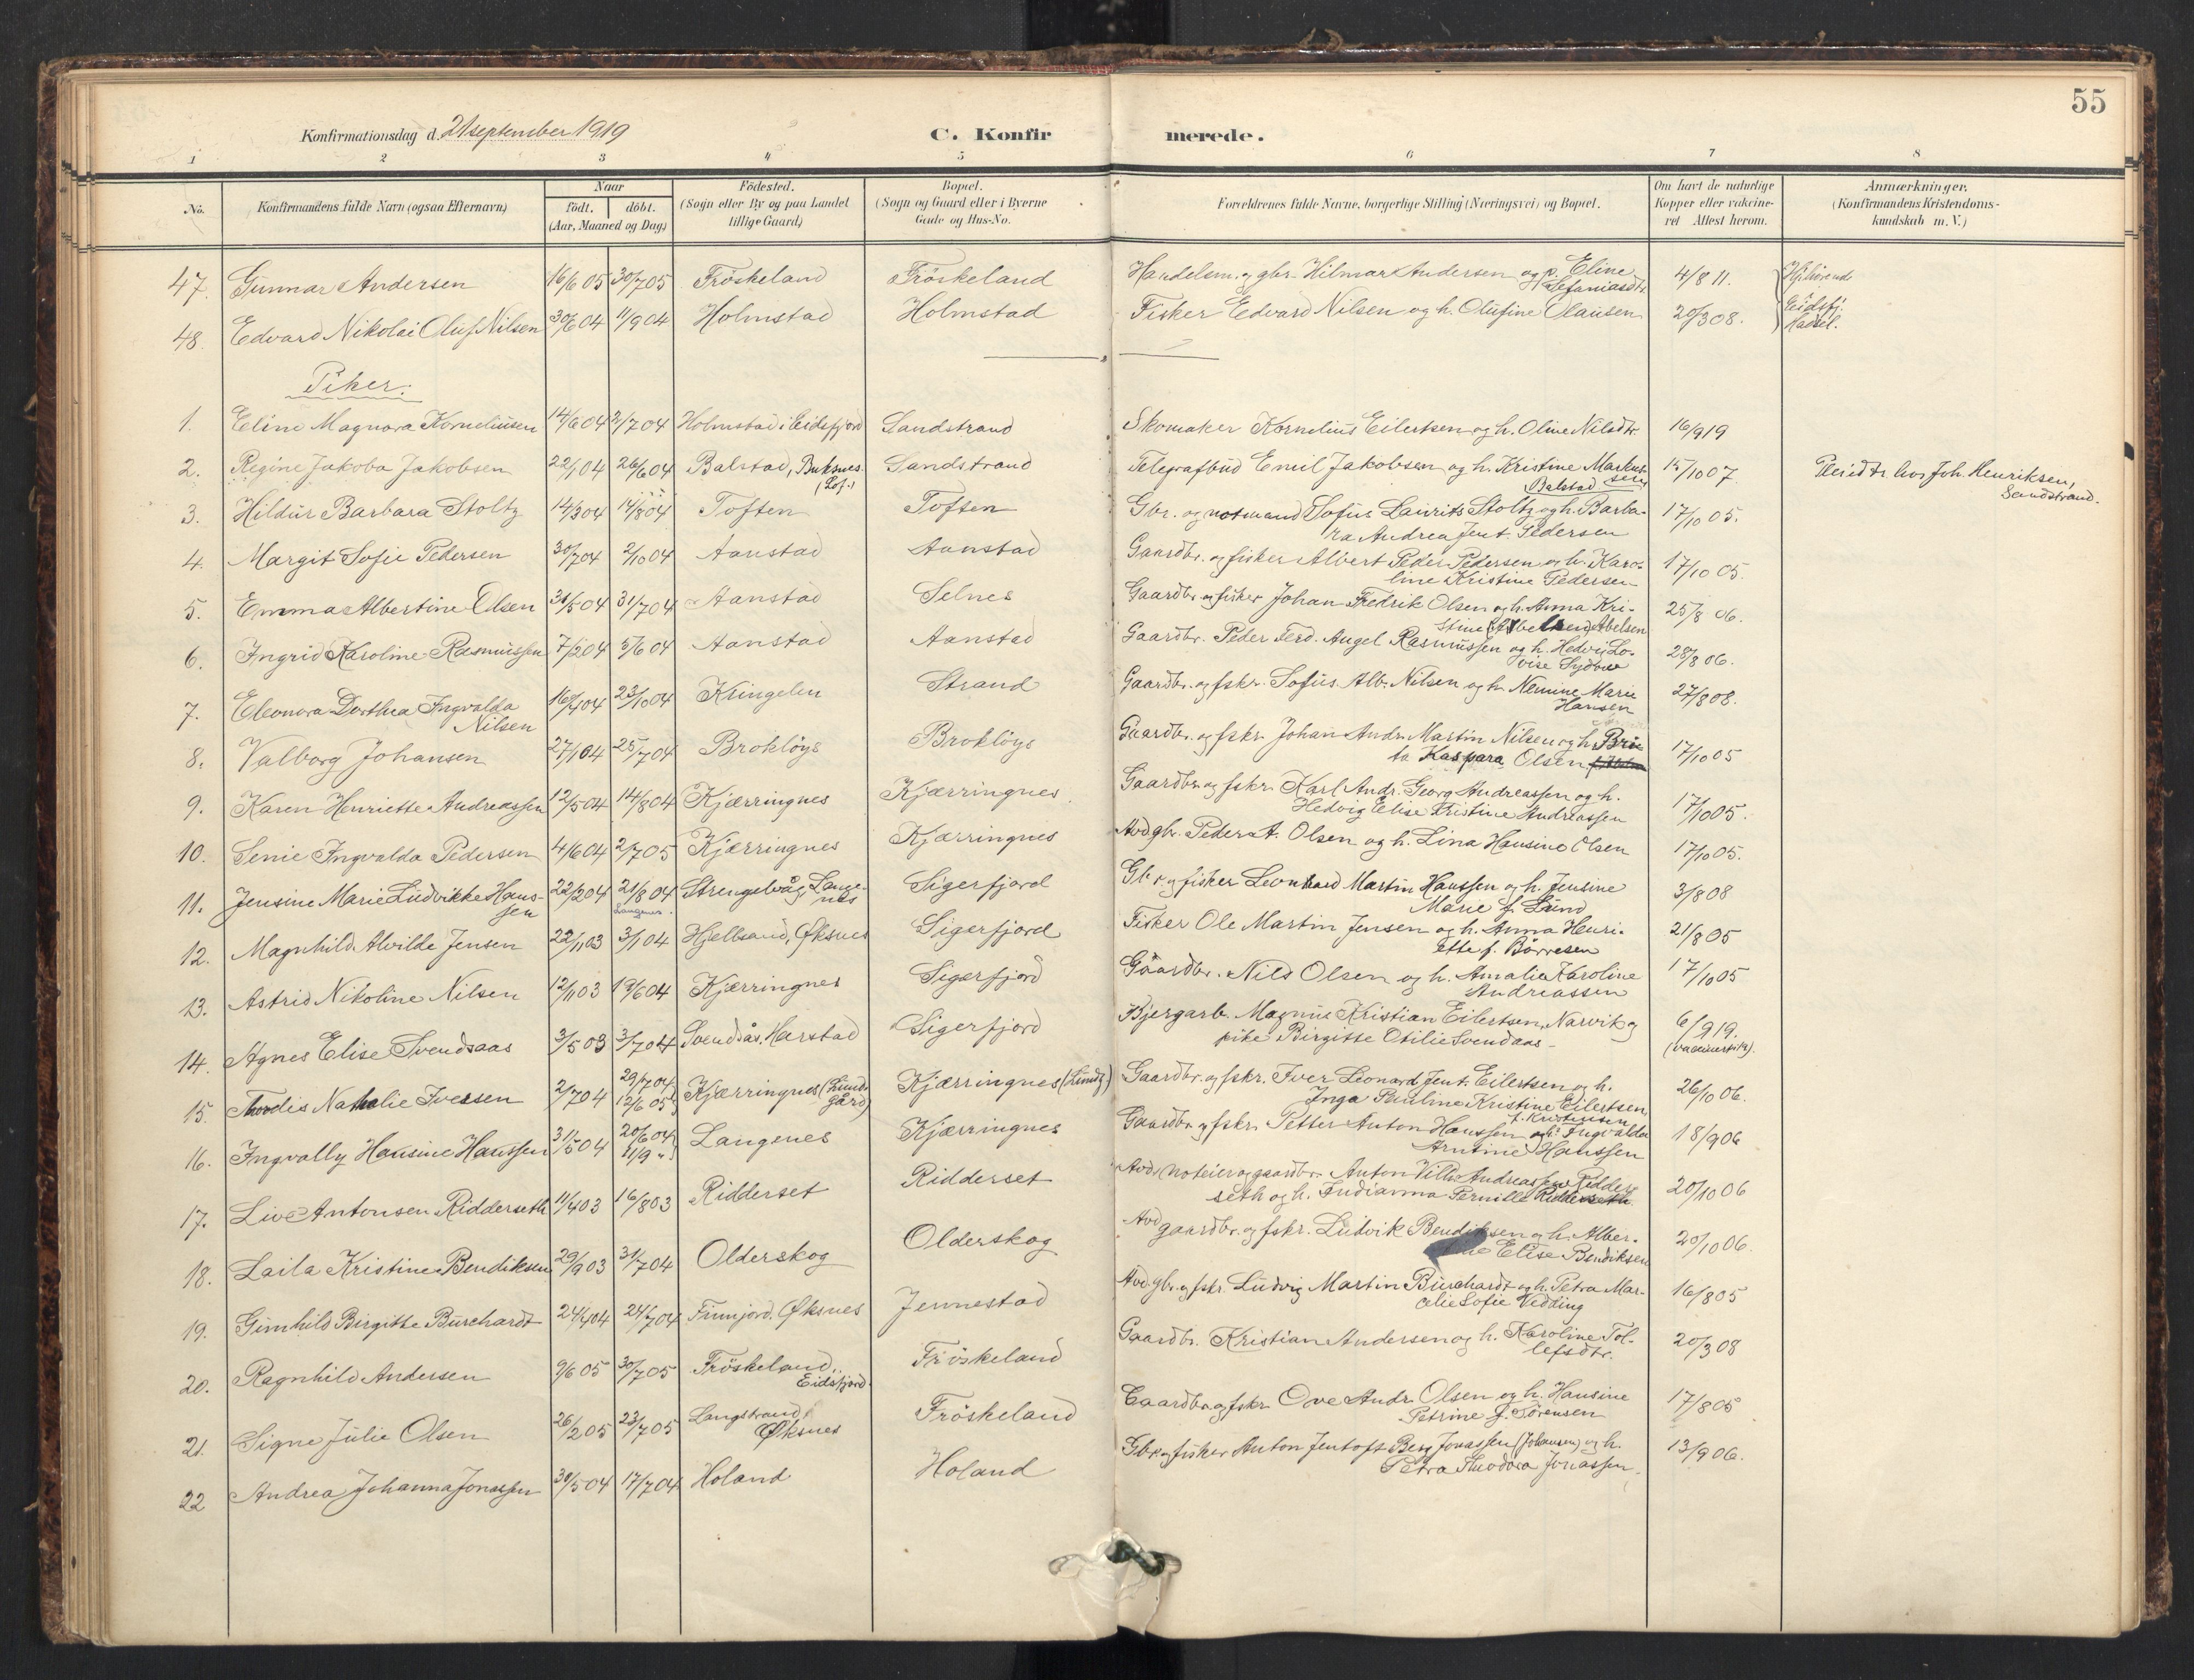 55
Konfirmationsdag d. 21 september 1919
C. Konfirmerede.
1 2 3 4 5 6 7 8
No. Konfirmandens fulde Navn (ogsaa Efternavn) Naar født. døbt. (Aar, Maaned og Dag) Födested. (Sogn eller By og paa Landet tillige Gaard) Bopæl. (Sogn og Gaard eller i Byerne Gade og Hus-No. Forældrenes fulde Navne, borgerlige Stilling (Næringsvei) og Bopæl. Om havt de naturlige Kopper eller vakcineret Attest herom. Anmærkninger. (Konfirmandens Kristendomskundskab m. V.)
47. Gunnar Andersen 16/6 05 30/7 05 Fröskeland Fröskeland Handelsm. og gbr. Hilmar Andersen og p. Eline Stefaniasdtr. 4/8 11.
48. Edvard Nikolai Oluf Nilsen 30/6 04 11/9 04 Holmstad Holmstad Fisker Edvard Nilsen og h. Olufine Olausen 20/3 08. Eidsfj. Hadsel.
Piker.
1. Eline Magnora Korneliusen 14/6 04 3/7 04 Holmstad i Eidsfjord Sandstrand Skomaker Kornelius Eilertsen og h. Oline Nilsdtr. 16/9 19
2. Regine Jakoba Jakobsen 22/1 04 26/6 04 Balstad, Buksnes. (Lof.) Sandstrand Telegrafbud Emil Jakobsen og h. Kristine Markussen Balstad 15/10 07. Pleiedtr. hos Joh. Henriksen, Sandstrand.
3. Hildur Barbara Stoltz 14/3 04 14/8 04 Toften Toften Gbr. og notmand Sofus Laurits Stoltz og h. Barbara Andrea Jent. Pedersen 17/10 05.
4. Margit Sofie Pedersen 30/7 04 2/10 04 Aanstad Aanstad Gaardbr. og fisker Albert Peder Pedersen og h. Karoline Kristine Pedersen 17/10 05.
5. Emma Albertine Olsen 31/5 04 31/7 04 Aanstad Selnes Gaardbr. og fisker Johan Fredrik Olsen og h. Anna Kristine Abelsen 25/8 06.
6. Ingrid Karoline Rasmussen 7/2 04 5/6 04 Aanstad Aanstad Gaardbr. Peder Ferd. Angel Rasmussen og h. Hedvig Lovise 28/8 06.
7. Eleonora Dorthea Ingvalda Nilsen 16/4 04 23/10 04 Kringelen Strand Gaardbr. og fskr. Sofus Alb. Nilsen og h. Nemine Marie Hansen 27/8 08.
8. Valborg Johansen 27/1 04 25/7 04 Brokløys Brokløys Gaardbr. og fskr. Johan Andr. Martin Nilsen og h. Brita Kaspara Olsen 17/10 05
9. Karen Henriette Andreassen 12/5 04 14/8 04 Kjærringnes Kjærringnes Gaardbr. og fskr. Karl Andr. Georg Andreassen og h. Hedvig Elise Kristine Andreassen 17/10 05.
10. Senie Ingvalda Pedersen 4/6 04 2/7 05 Kjærringnes Kjærringnes Avd gbr. Peder A. Olsen og h. Lina Hansine Olsen 17/10 05.
11. Jensine Marie Ludvikke Hanssen 22/2 04 21/8 04 Langenes. Strengelvåg, Langenes Sigerfjord Gbr. og fisker Leonhard Martin Hanssen og h. Jensine Marie f. Lund 3/8 08
12. Magnhild Alvilde Jensen 22/11 03 3/1 04 Hjellsand, Øksnes Sigerfjord Fisker Ole Martin Jensen og h. Anna Henriette f. Børresen 21/8 05
13. Astrid Nikoline Nilsen 12/11 03 19/6 04 Kjærringnes Sigerfjord Gaardbr. Nils Olsen og h. Amalie Karoline Andreassen 17/10 05
14. Agnes Elise Svendsaas 3/5 03 3/7 04 Svendsås, Harstad Sigerfjord Bjergarb. Magnus Kristian Eilertsen, Narvik og pike Birgitte Otilie Svendaas 6/9 19.
15. Thordis Nathalie Iversen 2/7 04 29/7 04 12/6 05 Kjærringnes (Lundgård) Kjærringnes (Lundg.) Gaardbr. og fskr. Iver Leonard Jent. Eilertsen og h. Inga Pauline Kristine Eilertsen f. Kristensen 26/10 06.
16. Ingvally Hansine Hanssen 31/5 04 20/6 04 11/9 " Langenes Kjærringnes Gaardbr. og fskr. Petter Anton Hanssen og h. Ingvalda Arntine Hanssen 18/9 06
17. Live Antonsen Ridderseth 11/4 03 16/8 03 Ridderset Ridderset Avd. noteier og gaardbr. Anton Vilh. Andreassen Ridderseth og h. Indianna Pernille Ridderseth 20/10 06
18. Laila Kristine Bendiksen 29/9 03 31/7 04 Olderskog Olderskog Avd gaardbr. og fskr. Ludvik Bendiksen og h. Albertine Elise Bendiksen 20/10 06.
19. Gunhild Birgitte Burchardt 24/4 04 24/7 04 Finnjord, Øksnes Jennestad Avd. gbr. og fskr. Ludvig Martin Burchardt og h. Petra Marcelie Sofie Vedding 16/8 05
20. Ragnhild Andersen 9/6 05 30/7 05 Fröskeland, Eidsfjord. Fröskeland Gaardbr. Kristian Andersen og h. Karoline Tollefsdtr. 20/3 08
21. Signe Julie Olsen 26/2 05 23/7 05 Langstrand, Øksnes Fröskeland Gaardbr. og fskr. Ove Andr. Olsen og h. Hansine Petrine f. Sørensen 17/8 05
22 Andrea Johanna Jonassen 30/5 04 17/7 04 Holand Holand Gbr. og fisker Anton Jentoft Berg Jonassen (Johansen) og h. Petra Theodora Jonassen. 13/9 06.